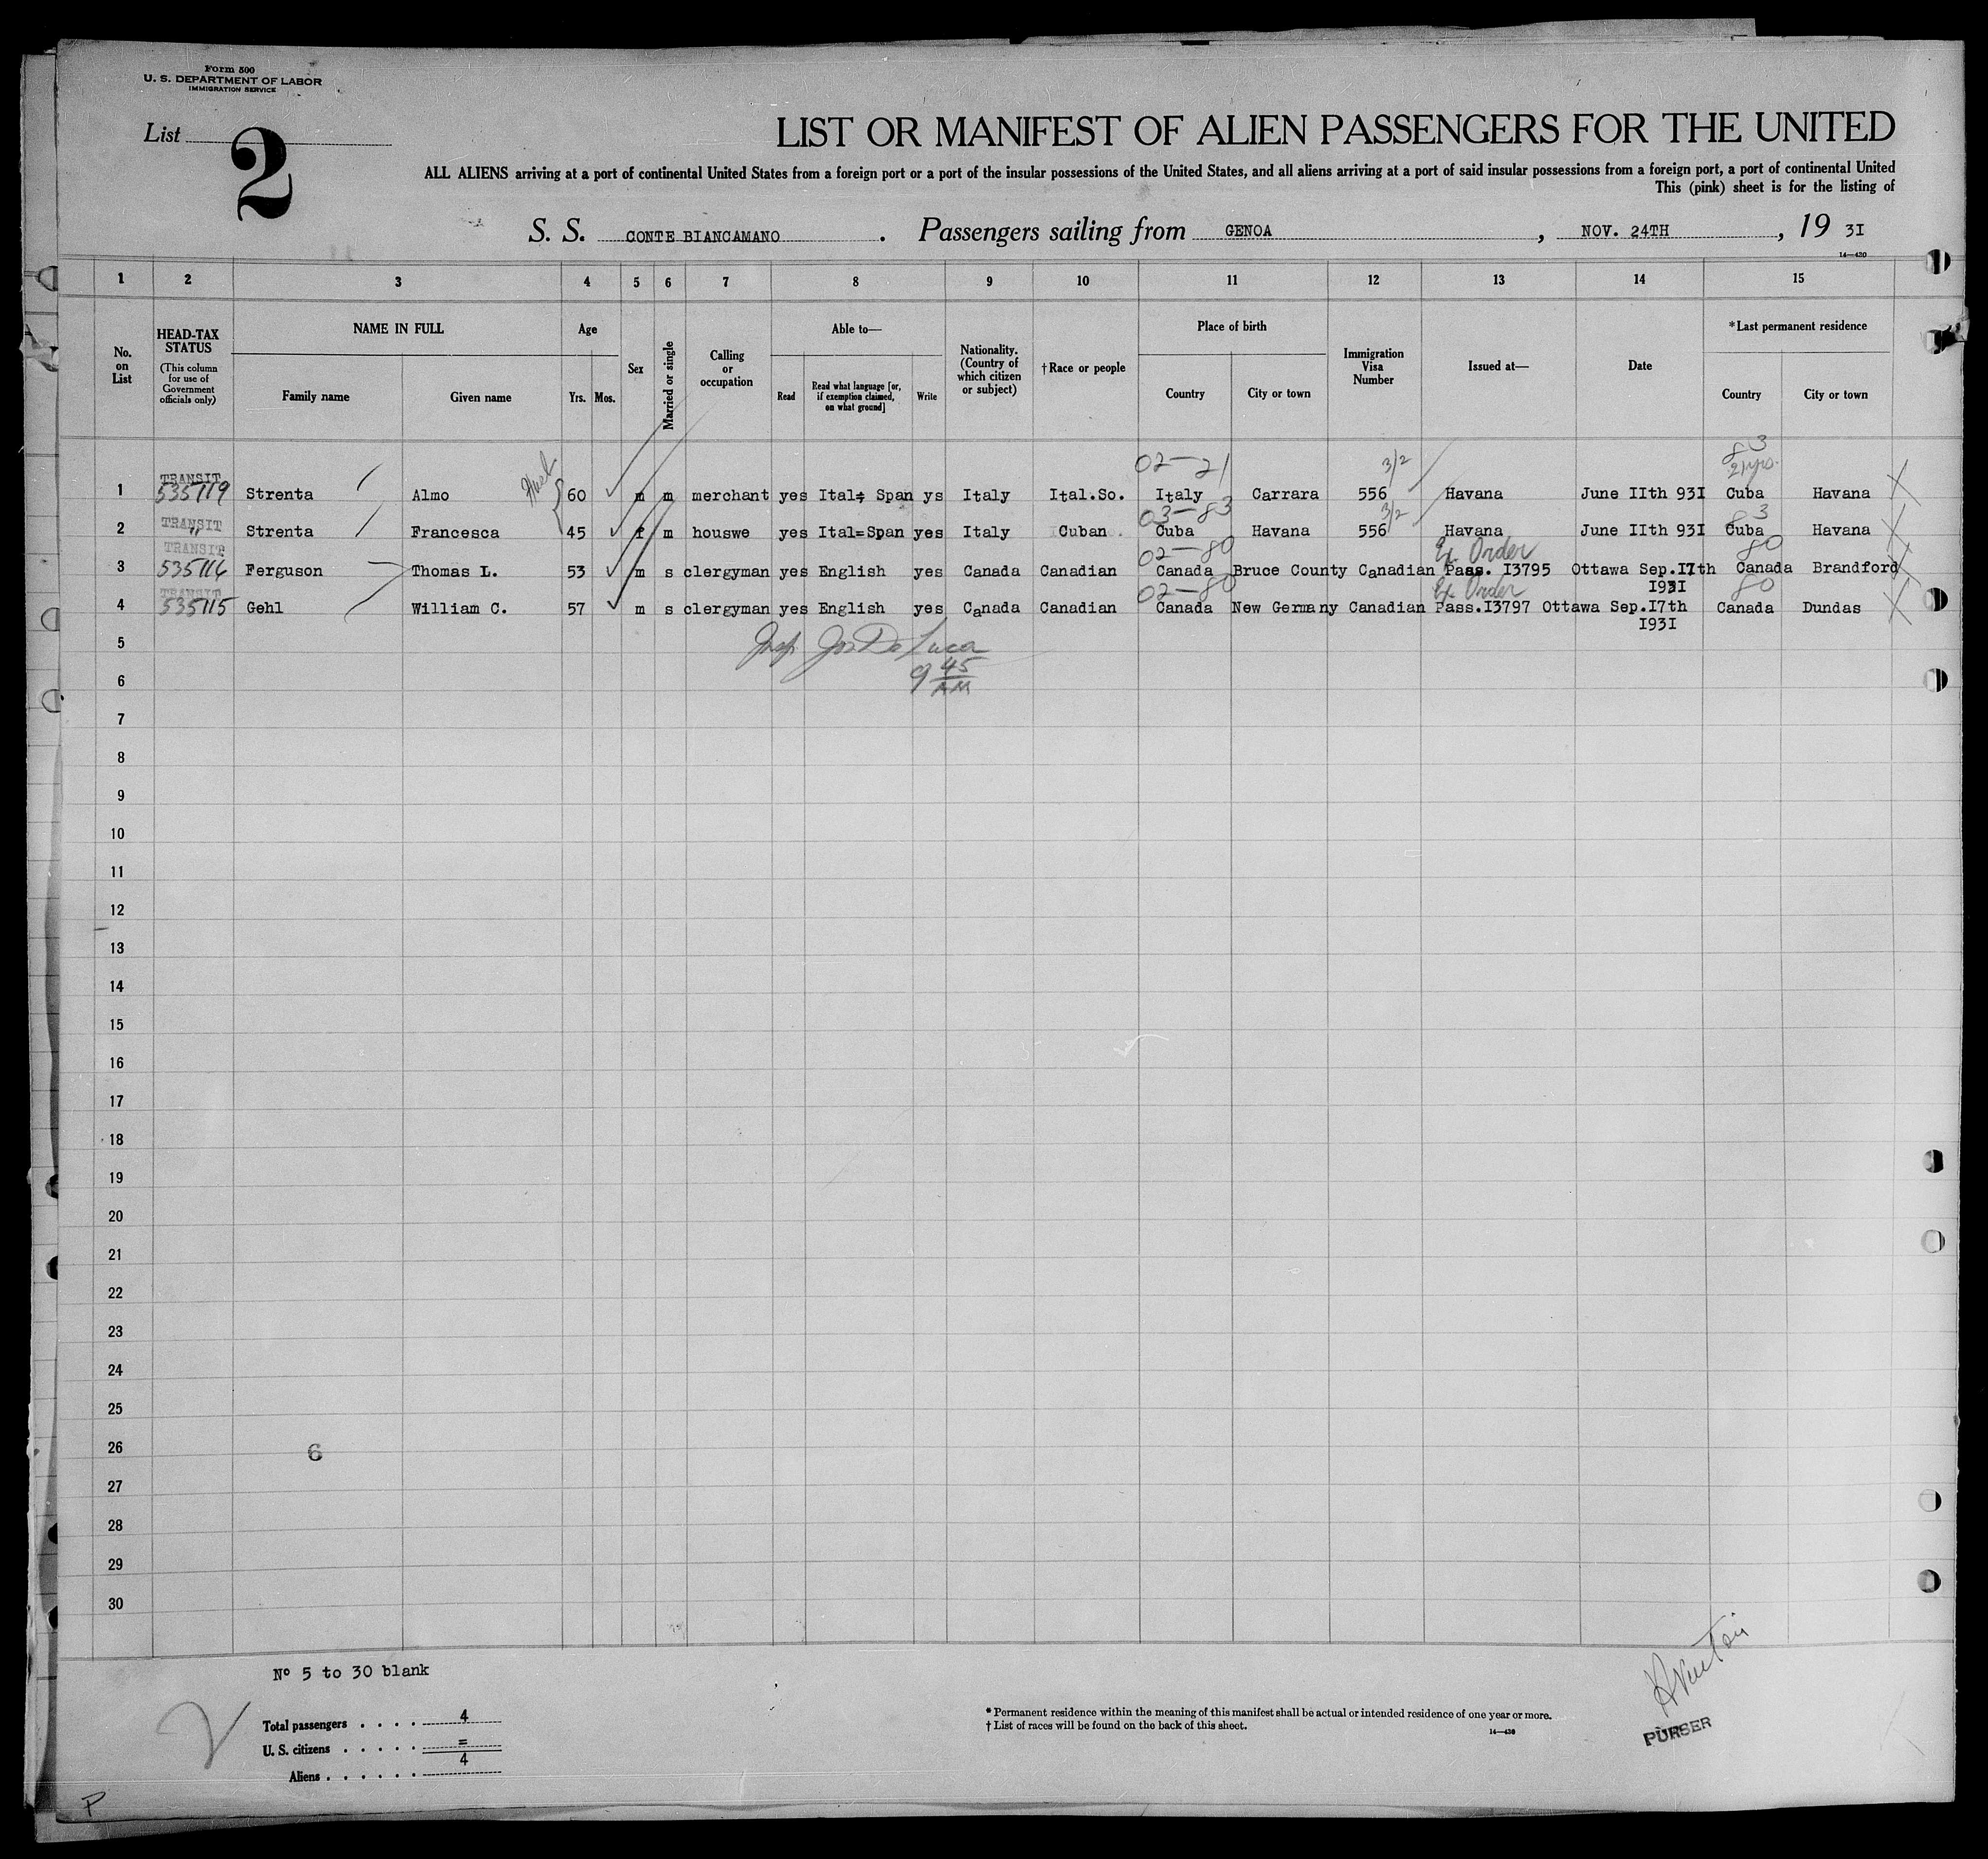 Form 500
U. S. DEPARTMENT OF LABOR
IMMIGRATION SERVICE
List 2
LIST OR MANIFEST OF ALIEN PASSENGERS FOR THE UNITED
ALL ALIENS arriving at a port of continental United States from a foreign port or a port of the insular possessions of the United States, and all aliens arriving at a port of said insular possessions from a foreign port, a port of continental United
This (pink) sheet is for the listing of
S. S. CONTE BIANCAMANO . Passengers sailing from GENOA , NOV. 24TH , 19 3I
14—430
1 2 3 4 5 6 7 8 9 10 11 12 13 14 15
No. on List
HEAD-TAX STATUS
(This column for use of Government officials only)
NAME IN FULL
Family name Given name
Age
Yrs. Mos.
Sex
Married or single
Calling or occupation
Able to—
Read Read what language [or, if exemption claimed, on what ground] Write
Nationality. (Country of which citizen or subject)
†Race or people
Place of birth
Country City or town
Immigration Visa Number
Issued at—
Date
*Last permanent residence
Country City or town
02—21 3/2 83
21 yrs.
TRANSIT
1 535119 Strenta Almo 60 m m merchant yes Ital= Span ys Italy Ital.So. Italy Carrara 556 Havana June IIth 93I Cuba Havana
03—83 3/2 83
TRANSIT
2 " Strenta Francesca 45 f m houswe yes Ital=Span yes Italy Cuban Cuba Havana 556 Havana June IIth 93I Cuba Havana
TRANSIT
02—80 Ex Order 80
3 535116 Ferguson Thomas L. 53 m s clergyman yes English yes Canada Canadian Canada Bruce County Canadian Pass. I3795 Ottawa Sep.I7th Canada Brandford
I93I
TRANSIT
02—80 Ex Order 80
4 535115 Gehl William C. 57 m s clergyman yes English yes Canada Canadian Canada New Germany Canadian Pass.I3797 Ottawa Sep.I7th Canada Dundas
I93I
5
Insp Jos De Luca
9 45
AM
6
7
8
9
10
11
12
13
14
15
16
17
18
19
20
21
22
23
24
25
26 6
27
28
29
30
Nº 5 to 30 blank
Total passengers . . . . 4
U. S. citizens . . . . . =
Aliens . . . . . . 4
* Permanent residence within the meaning of this manifest shall be actual or intended residence of one year or more.
† List of races will be found on the back of this sheet.
14—430
PURSER
P